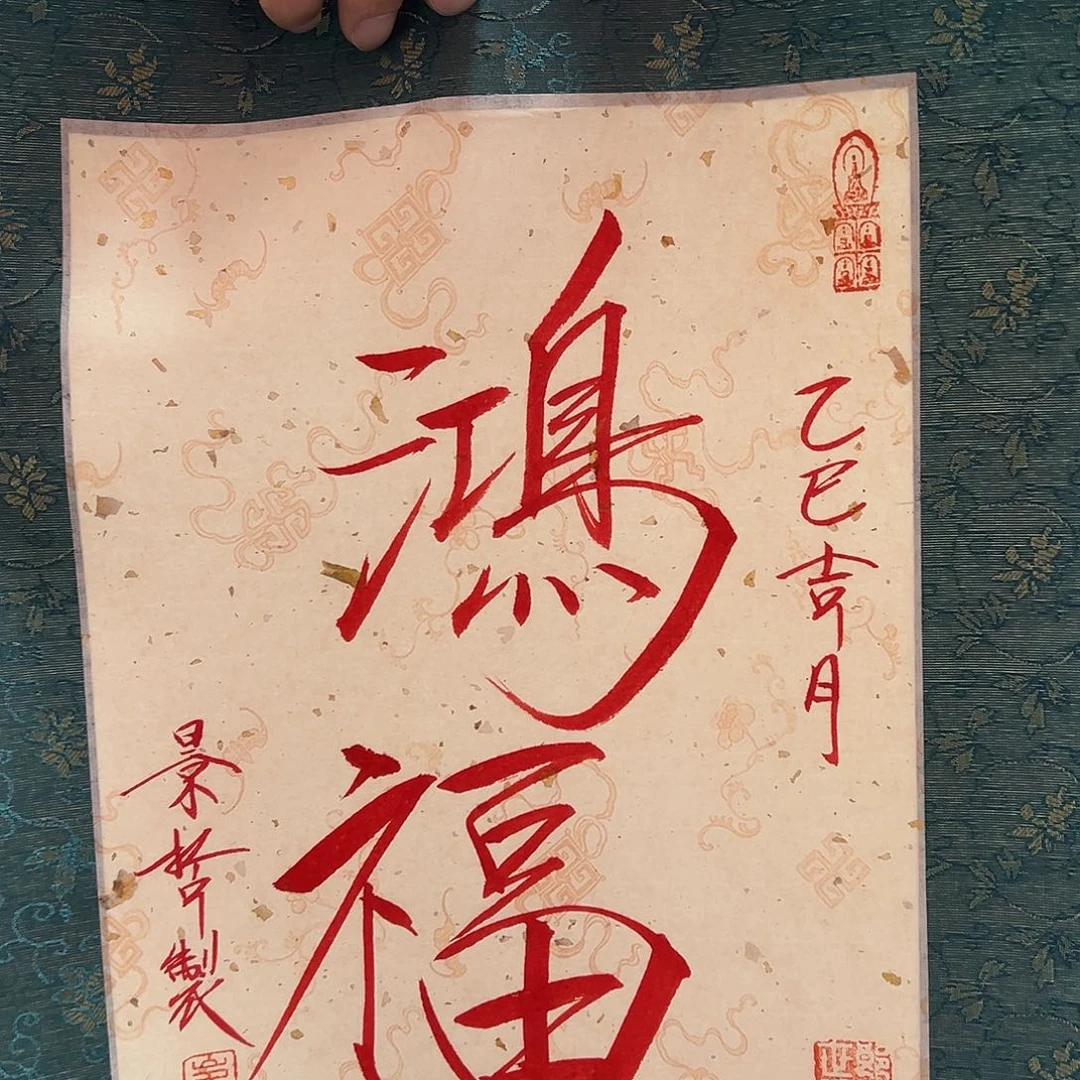 乙巳吉月
鴻福
景哲製